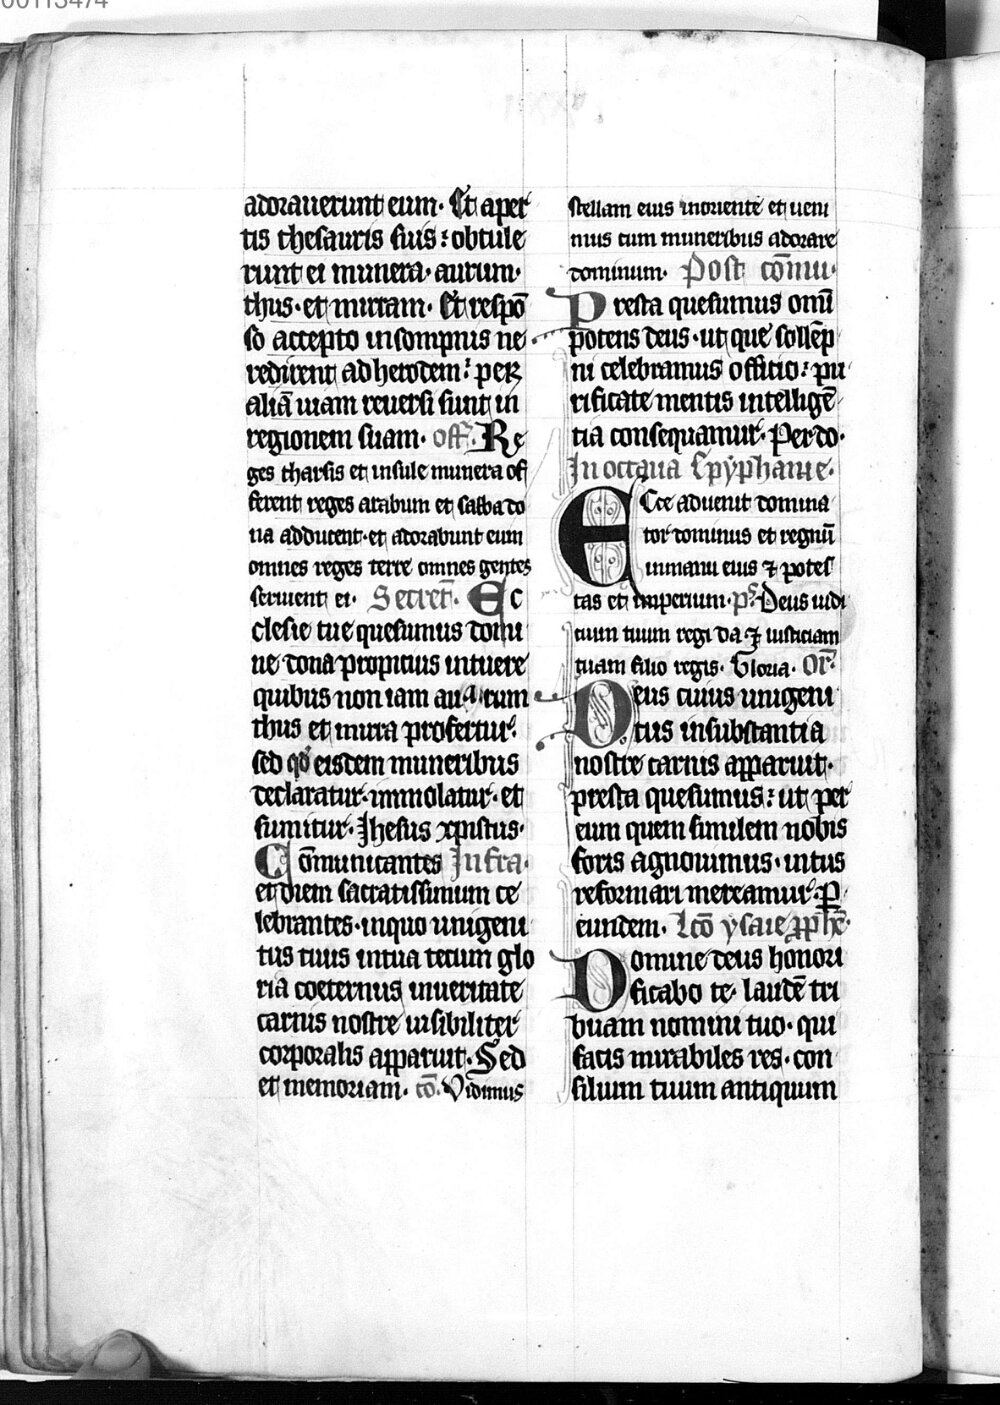 00113474
adorauerunt eum· Et aper
tis thesauris suis : obtule
runt ei munera· aurum·
thus· et mirram· Et respō
so accepto insompnis ne
redirent ad herodem : per
aliā uiam reuersi sunt in
regionem suam· off̄· Re
ges tharsis et insule munera of
ferent reges arabum et sabba do
na adducent· et adorabunt eum
omnes reges terre omnes gentes
seruient ei· Secret̄· Ec
clesie tue quesumus domi
ne dona propitius intuere
quibus non iam au cum
thus et mirra profertur
sed qd̄ eisdem muneribus
declaratur· immolatur· et
sumitur· Ihesus xpistus·
Cōmunicantes Infra·
et diem sacratissimum ce
lebrantes· inquo unigeni
tus tuus intua tecum glo
ria coeternus inueritate
carnis nostre uisibiliter
corporalis apparuit· Sed
et memoriam· cō· Vidimus
stellam eius inoriente et ueni
mus cum muneribus adorare
dominum· Post cōmu·
Presta quesumus omī
potens deus· ut que sollēp
ni celebramus offitio : pu
rificate mentis intelligē
tia consequamur· Per do·
In octaua Epyphanie·
Ecce aduenit domina
tor dominus et regnū
inmanu eius ⁊ potes
tas et imperium· ps̄· Deus iudi
cium tuum regi da ⁊ iusticiam
tuam filio regis· Gloria· Or̄·
Deus cuius unigeni
tus insubstantia
nostre carnis apparuit·
presta quesumus : ut per
eum quem similem nobis
foris agnouimus· intus
reformari mereamur· P̱
eundem· Lcō ysaie pphē·
Domine deus honori
ficabo te· laudē tri
buam nomini tuo· qui
facis mirabiles res· con
silium tuum antiquum